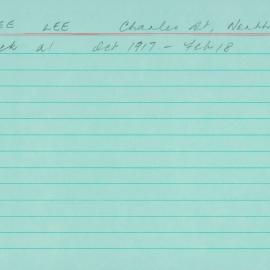 EE LEE Charles St, North
ck a/ Oct 1917 - Feb 18